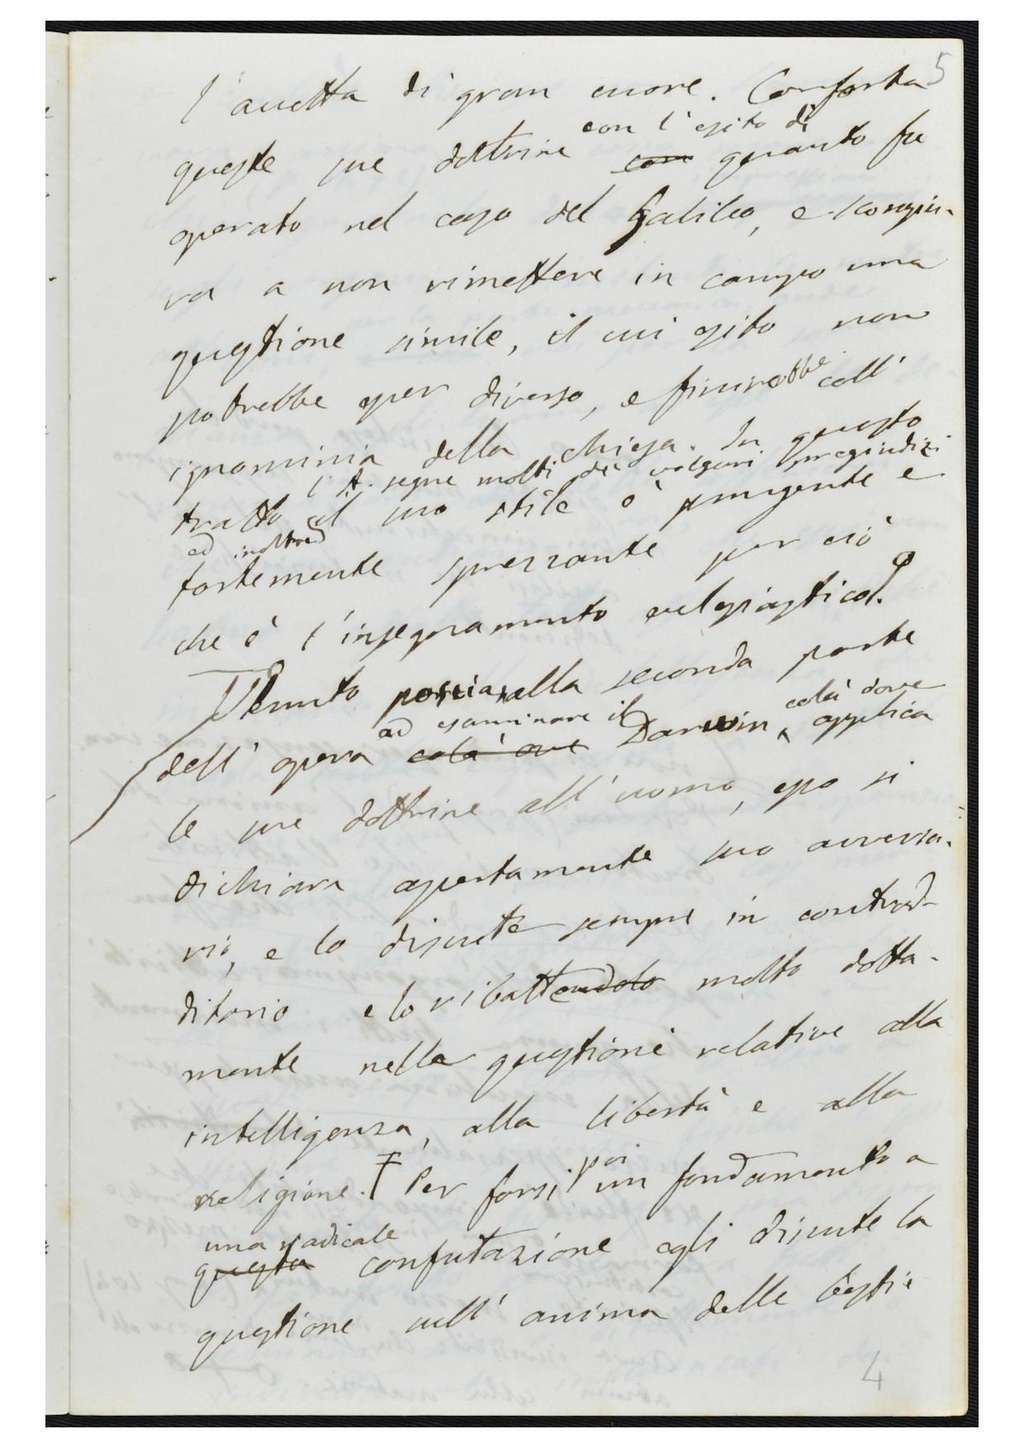 5
l'accetta di gran cuore. Conforta
con l'esito di
queste sue dottrine con quanto fu
operato nel caso del Galileo, e scongiu-
ra a non rimettere in campo una
questione simile, il cui esito non
potrebbe esser diverso, e finirebbe coll'
ignominia della chiesa. In questo
l'A. segue molti dei volgari pregiudizi
tratto il suo stile è pungente e
ed inoltre
fortemente sprezzante per ciò
che è l'insegnamento eclesiastico.
Venuto poscia alla seconda parte
ad esaminare il colà dove
dell'opera colà ove Darwin, applica
le sue dottrine all'uomo, esso si
dichiara apertamente suo avversa-
rio, e lo discute sempre in contrad-
ditorio e lo ribattendolo molto dotta-
mente nelle questioni relative alla
intelligenza, alla libertà e alla
religione. Per farsi poi un fondamento a
una radicale
questa confutazione egli discute la
questione sull'anima delle bestie
4